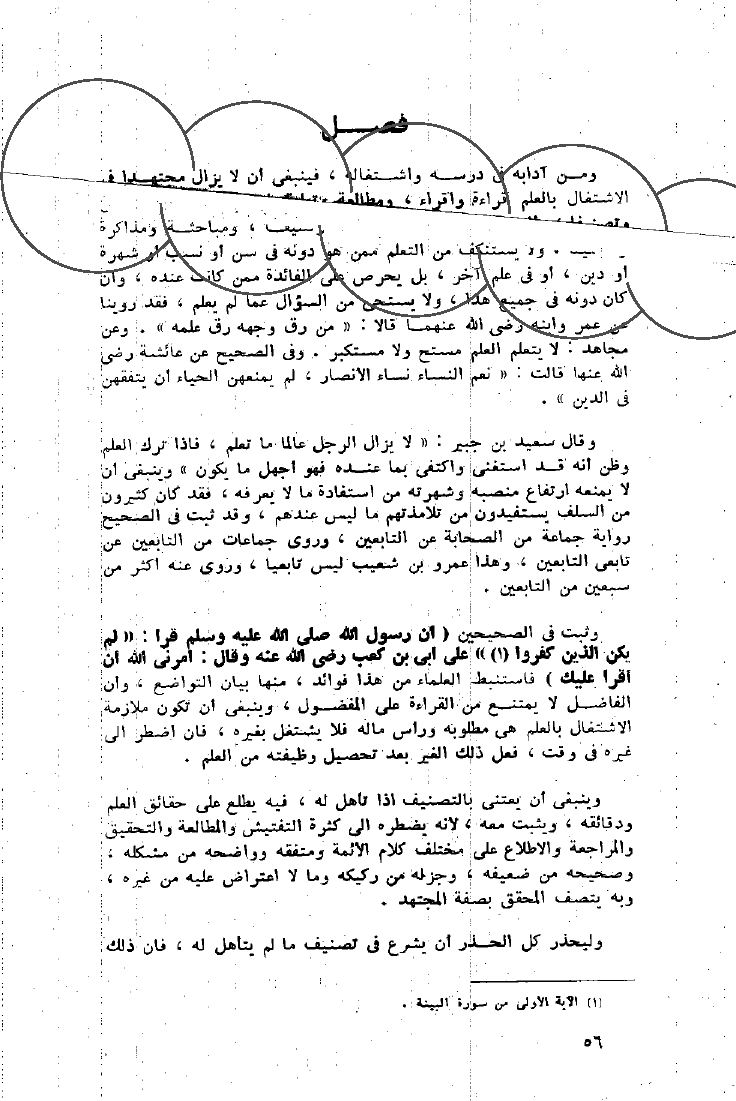 فصـــل
ومـن آدابه فى درسـه واشـتغاله ، فينبغى أن لا يزال مجتهـدا فى
الاشتغال بالعلم قراءة واقراء ، ومطالعة
ومباحثـة ومذاكرة
يستنكف من التعلم ممن هو دونه فى سن أو نسب أو شهرة
أو دين ، أو فى علم آخر ، بل يحرص على الفائدة ممن كانت عنده ، وان
كان دونه فى جميع هذا ، ولا يستحى من السؤال عما لم يعلم ، فقد روينا
عن عمر وابنه رضى الله عنهمـا قالا : « من رق وجهه رق علمه » . وعن
مجاهد : لا يتعلم العلم مستح ولا مستكبر . وفى الصحيح عن عائشة رضى
الله عنها قالت : « نعم النساء نساء الأنصار ، لم يمنعهن الحياء أن يتفقهن
فى الدين » .
وقال سعيد بن جبير : « لا يزال الرجل عالما ما تعلم ، فاذا ترك العلم
وظن أنه قـد استغنى واكتفى بما عنـده فهو أجهل ما يكون » وينبغى أن
لا يمنعه ارتفاع منصبه وشهرته من استفادة ما لا يعرفه ، فقد كان كثيرون
من السلف يستفيدون من تلامذتهم ما ليس عندهم ، وقد ثبت فى الصحيح
رواية جماعة من الصحابة عن التابعين ، وروى جماعات من التابعين عن
تابعى التابعين ، وهذا عمرو بن شعيب ليس تابعيا ، وروى عنه أكثر من
سبعين من التابعين .
وثبت فى الصحيحين ( أن رسول الله صلى الله عليه وسلم قرأ : « لم
يكن الذين كفروا (١) » على أبى بن كعب رضى الله عنه وقال : أمرنى الله أن
أقرأ عليك ) فاستنبط العلماء من هذا فوائد ، منها بيان التواضع ، وأن
الفاضـل لا يمتنـع من القراءة على المفضول ، وينبغى أن تكون ملازمة
الاشتغال بالعلم هى مطلوبه ورأس ماله فلا يشتغل بغيره ، فان اضطر الى
غيره فى وقت ، فعل ذلك الغير بعد تحصيل وظيفته من العلم .
وينبغى أن يعتنى بالتصنيف اذا تأهل له ، فبه يطلع على حقائق العلم
ودقائقه ، ويثبت معه ، لأنه يضطره الى كثرة التفتيش والمطالعة والتحقيق
والمراجعة والاطلاع على مختلف كلام الأئمة ومتفقه وواضحه من مشكله ،
وصحيحه من ضعيفه ، وجزله من ركيكه وما لا اعتراض عليه من غيره ،
وبه يتصف المحقق بصفة المجتهد .
وليحذر كل الحـذر أن يشرع فى تصنيف ما لم يتأهل له ، فان ذلك
(١) الآية الأولى من سورة البينة .
٥٦